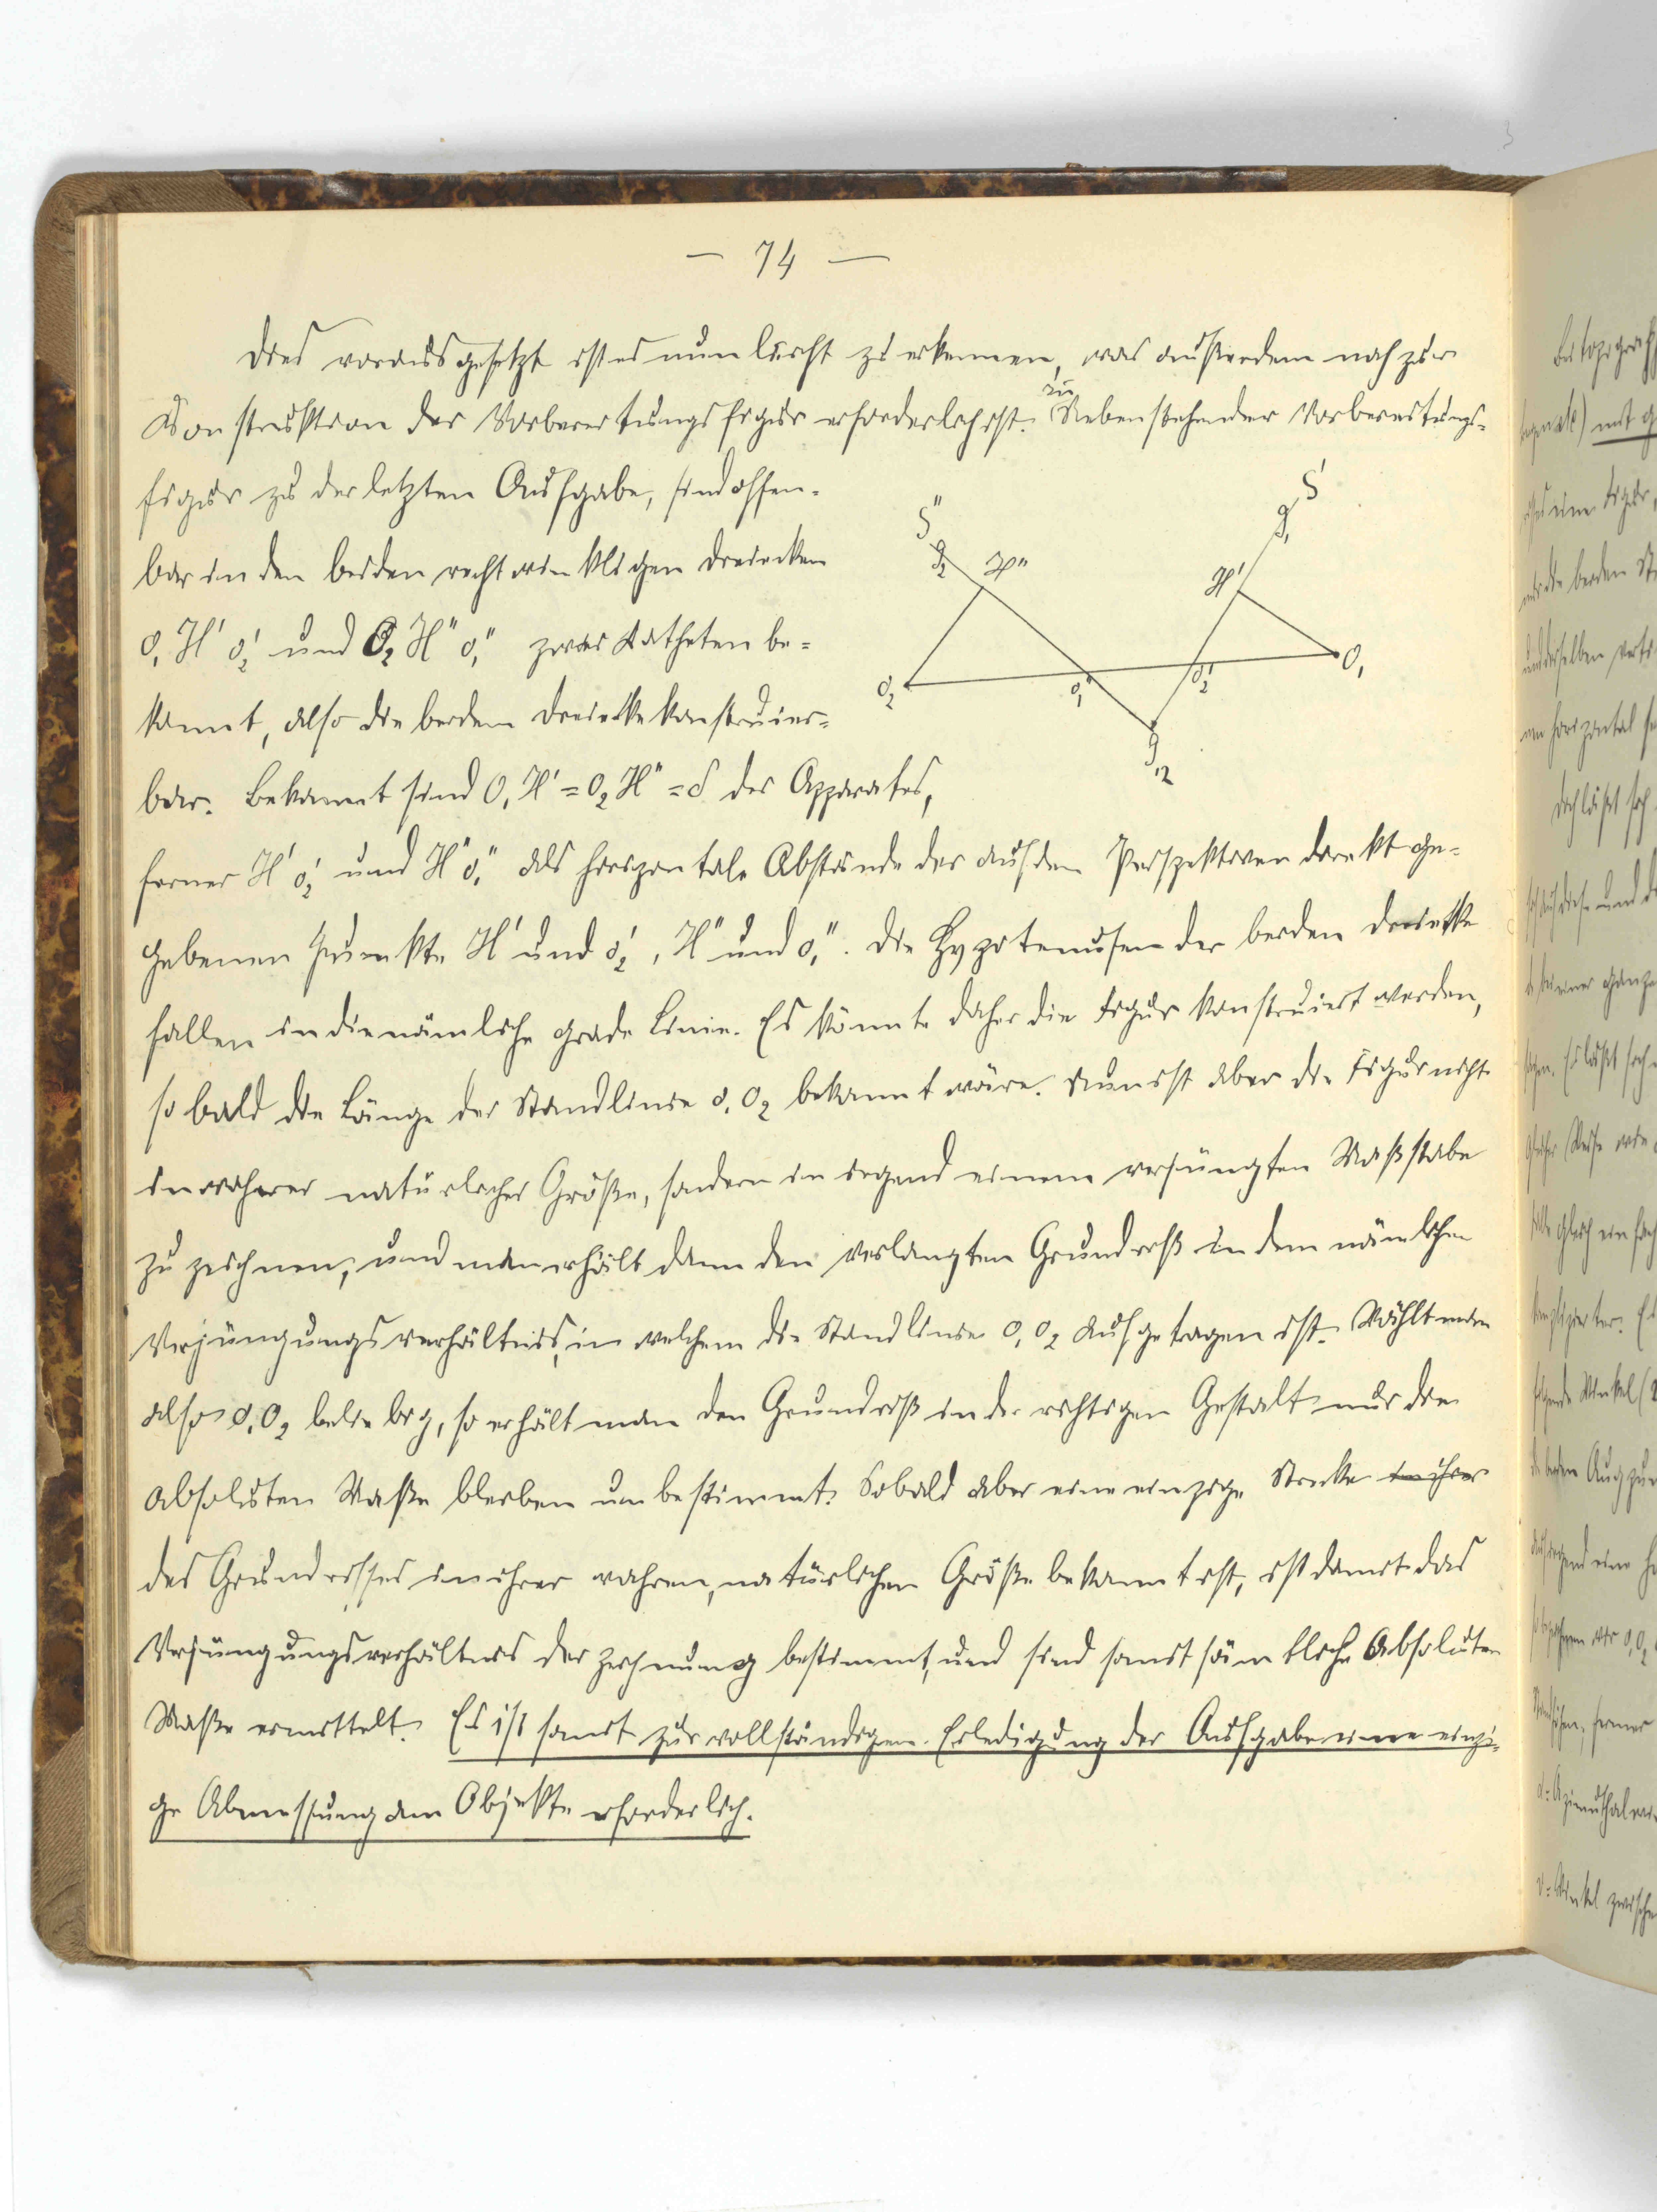 — 74 —
Dies vorausgesetzt ist es nun leicht zu erkennen, was außerdem noch zur
Konstruktion der Vorbereitungsfigur erforderlich ist. In nebenstehender Vorbereitungs-
figur zu der letzten Aufgabe, sind offen-
bar in den beiden rechtwinkligen Dreiecken
O₁ H' o₂' und O₂ H" o₁" zwei Katheten be-
kannt, also die beiden Dreiecke konstruier-
bar. Bekannt sind O₁ H' = O₂ H" = δ des Apparates,
ferner H' o₂' und H" o₁" als horizontale Abstände der auf den Perspektiven direkt ge-
gebenen Punkte H' und o₂', H" und o₁". Die Hypotenusen der beiden Dreiecke
fallen in die nämliche grade Linie. Es könnte daher die Figur konstruiert werden,
sobald die Länge der Standlinie O₁ O₂ bekannt wäre. Nun ist aber die Figur nicht
in wahrer natürlicher Größe, sondern in irgend einem verjüngten Maßstabe
zu zeichnen, und man erhält dann den verlangten Grundriß in dem nämlichen
Verjüngungsverhältnis, in welchem die Standlinie O₁ O₂ aufgetragen ist. Wählt man
also O₁ O₂ beliebig, so erhält man den Grundriß in der richtigen Gestalt nur die
absoluten Maße bleiben unbestimmt. Sobald aber eine einzige Strecke in ihrer
des Grundrisses in ihrer wahren, natürlichen Größe bekannt ist, ist damit das
Verjüngungsverhältnis der Zeichnung bestimmt, und sind somit sämtliche absoluten
Maße ermittelt. Es ist somit zur vollständigen Erledigung der Aufgabe eine einzi-
ge Abmessung am Objekte erforderlich.
S"
g₂
H"
S'
g₁
H'
O₂
o₁"
o₂'
O₁
g₁₂